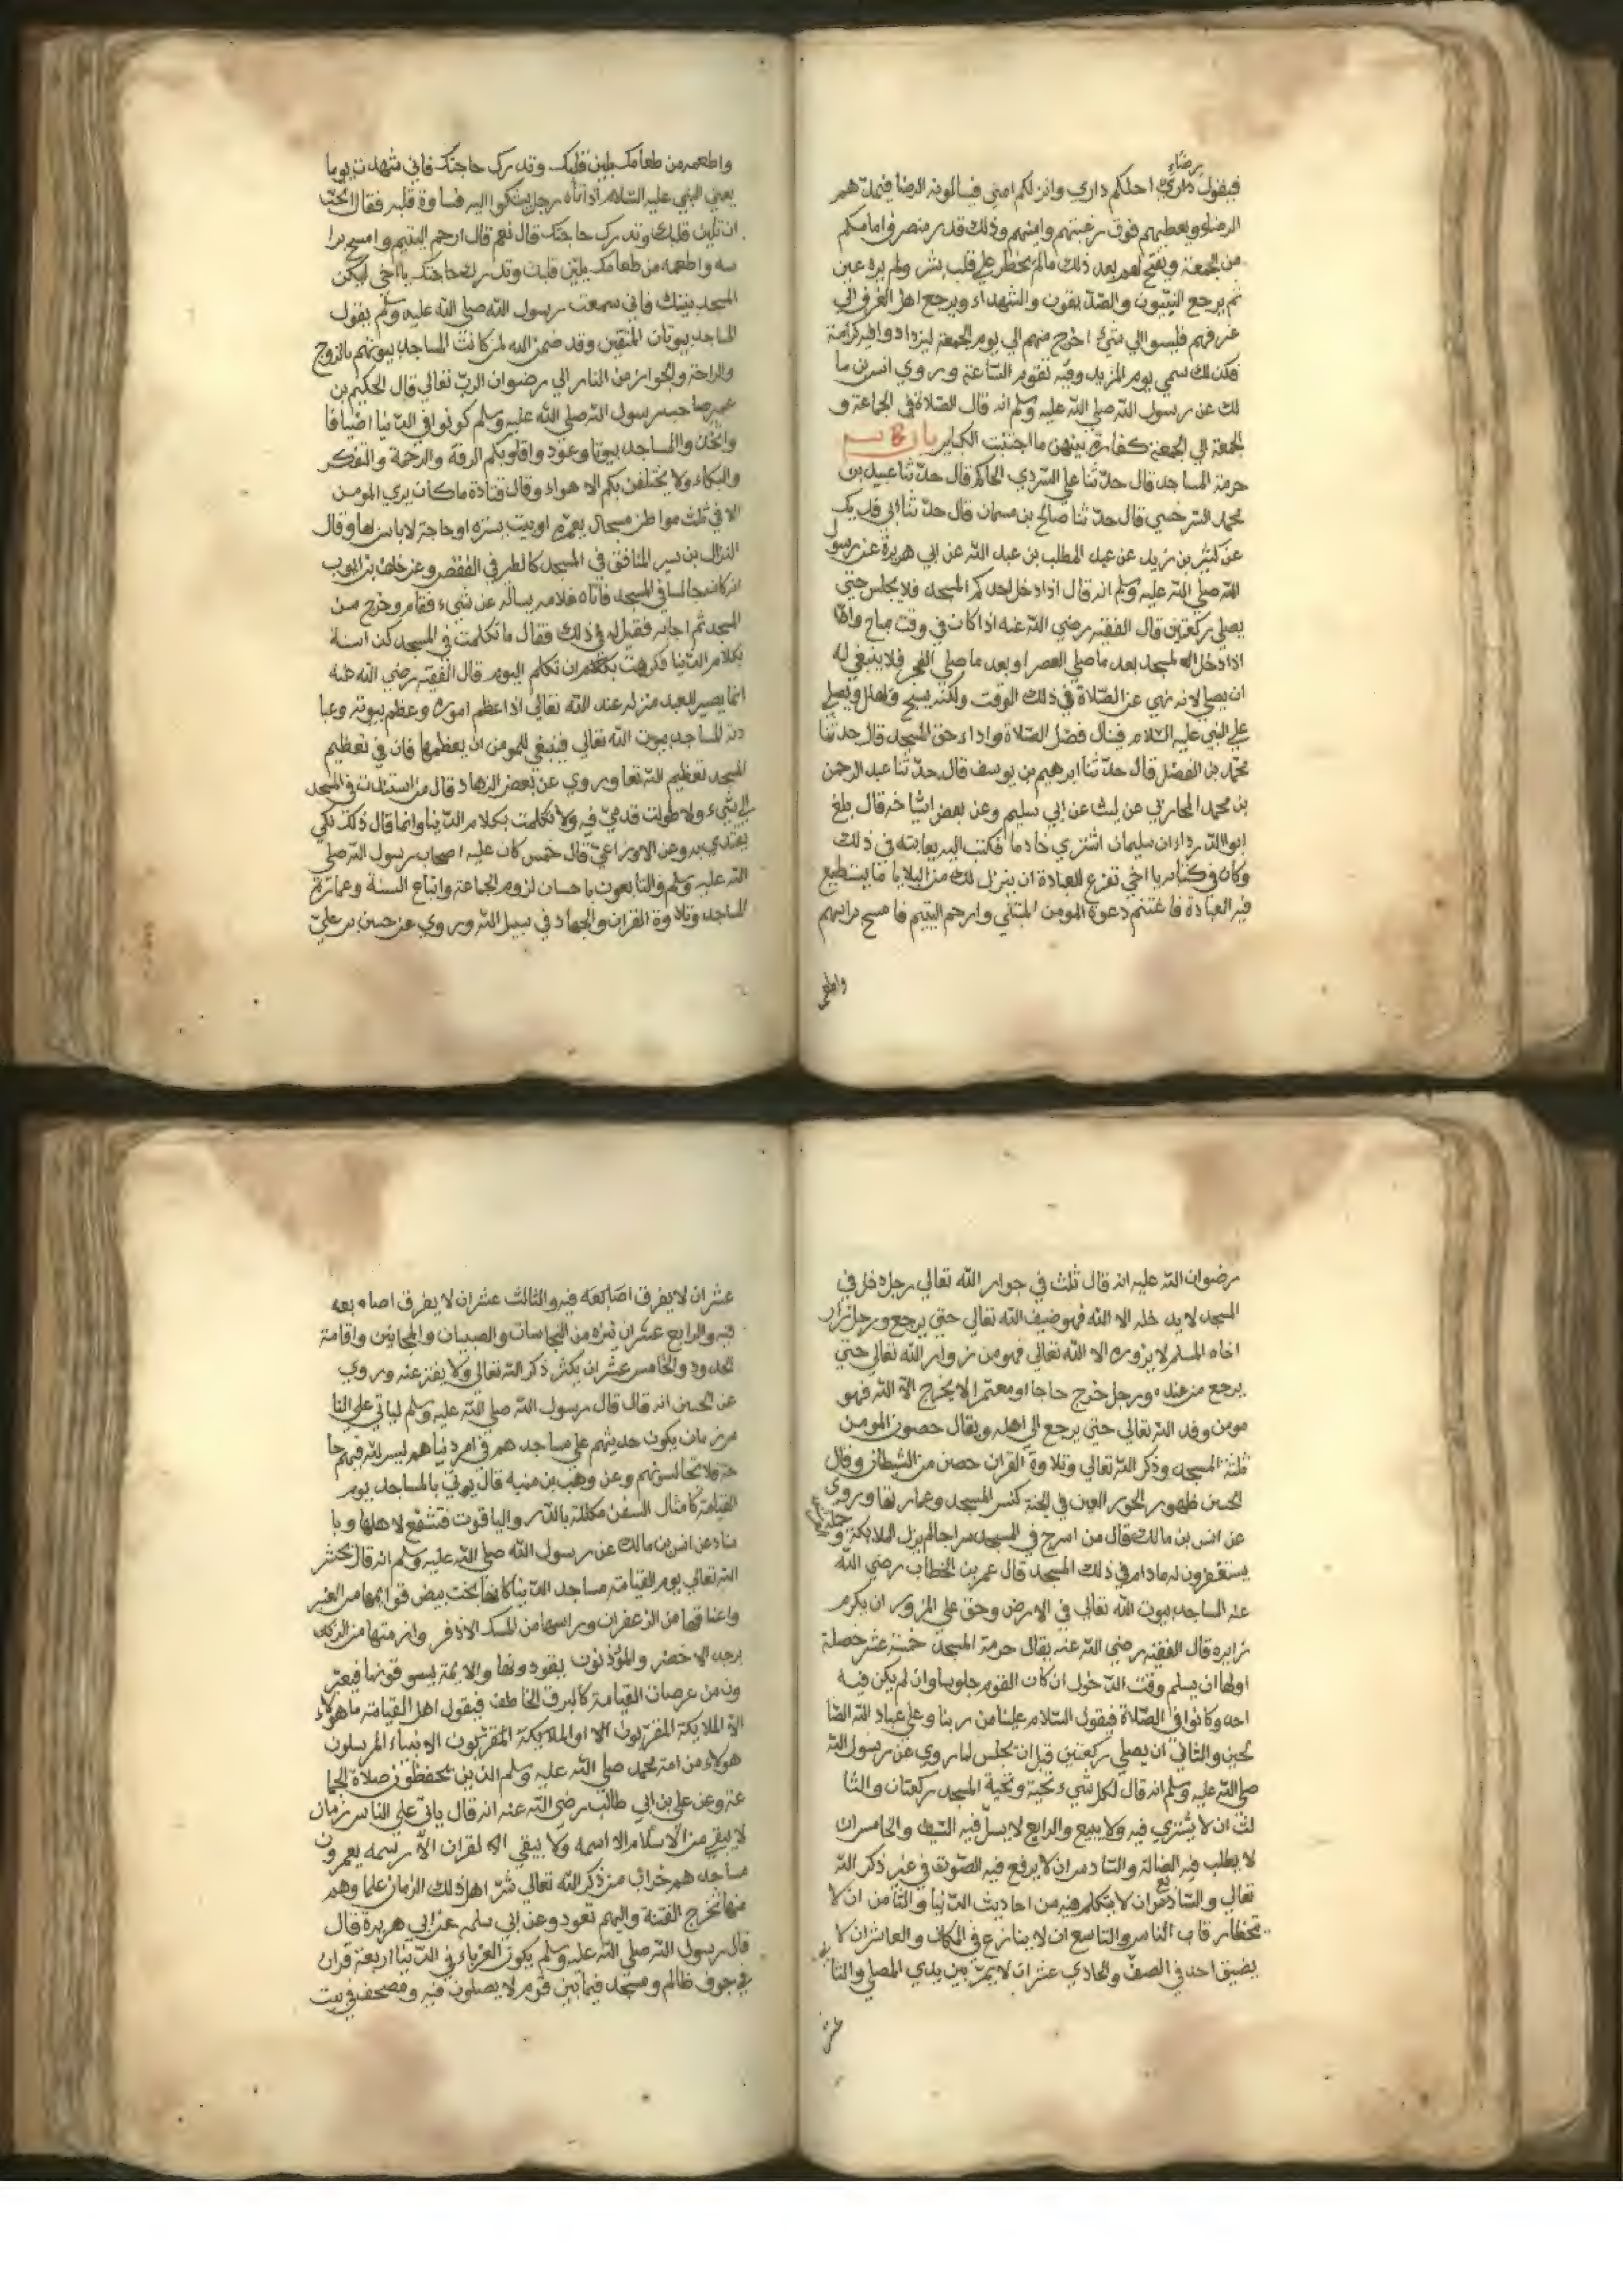 رضاي
فيقول داري احلكم داري وانزلكم امني فيسالونه الرضا فيشهد لهم
الرضاء ويعطيهم فوق رغبتهم وامنيتهم وذلك قدر منصرف امامكم
من الجمعة ويفتح لهم بعد ذلك مالم يخطر علي قلب بشر ولم يره عين
ثم يرجع النبيون والصديقون والشهداء ويرجع اهل الغرف الي
غرفهم فليسوا الي شيء احوج منهم الي يوم الجمعة ليزدادوا فيه كرامة
فكذلك سمي يوم المزيد وفيه تقوم الساعة وروي انس بن ما
لك عن رسول الله صلي الله عليه وسلم انه قال الصلاة في الجماعة و
الجمعة الي الجمعة كفارة بينهن ما اجتنبت الكباير باب
حرمة المساجد قال حدثنا علي السردي الحاكم قال حدثنا عبيد بن
محمد السرخسي قال حدثنا صالح بن مسمان قال حدثنا ابي فديك
عن كثير بن زيد عن عبد المطلب بن عبد الله عن ابي هريرة عن رسول
الله صلي الله عليه وسلم انه قال اذا دخل احدكم المسجد فلا يجلس حتي
يصلي ركعتين قال الفقيه رضي الله عنه اذا كان في وقت مباح واما
اذا دخل المسجد بعد ما صلي العصر او بعد ما صلي الفجر فلا ينبغي له
ان يصلي لانه نهي عن الصلاة في ذلك الوقت ولكنه يسبح ويهلل ويصلي
علي النبي عليه السلام فينال فضل الصلاة واداء حق المسجد قال حدثنا
محمد بن الفضل قال حدثنا ابرهيم بن يوسف قال حدثنا عبد الرحمن
بن محمد المحاربي عن ليث عن ابي سليم وعن بعض اشياخه قال بلغ
ابو الدرداء ان سليمان اشتري خادما فكتب اليه يعاتبه في ذلك
وكان في كتابه يا اخي تفرغ للعبادة ان ينزل لك من البلايا ما يستطيع
فيه العبادة فاغتنم دعوة المومن المبتلي وارحم اليتيم فامسح براسهم
واطعمه
واطعمه من طعامك يلين قلبك وتدرك حاجتك فاني شهدت يوما
يعني النبي عليه السلام اذ اتاه رجل يشكوا اليه قساوة قلبه فقال اتحب
ان تلين قلبك وتدرك حاجتك قال نعم قال ارحم اليتيم وامسح برا
سه واطعمه من طعامك يلين قلبك وتدرك حاجتك يا اخي ليكن
المسجد بيتك فاني سمعت رسول الله صلي الله عليه وسلم يقول
المساجد بيوتات المتقين وقد ضمن الله لمن كانت المساجد بيوتهم بالروح
والراحة والجواز من النار الي رضوان الرب تعالي قال الحكيم بن
عمير صاحب رسول الله صلي الله عليه وسلم كونوا في الدنيا اضيافا
واتخذوا المساجد بيوتا وعودوا قلوبكم الرقة والرحمة والتفكر
والبكاء ولا يختلفن بكم الاهواء وقال قتادة ما كان يري المومن
الا في ثلث مواطن مسجد يعمره او بيت يستره او حاجة لا باس بها وقال
النزال بن سير المنافق في المسجد كالطير في القفص وعن خلف بن ايوب
انه كان جالسا في المسجد فاتاه غلامه يساله عن شيء فقام وخرج من
المسجد ثم اجابه فقيل له في ذلك فقال ما تكلمت في المسجد كذا سنة
بكلام الدنيا فكرهت ان تكلم اليوم قال الفقيه رضي الله عنه
انما يصير للعبد منزله عند الله تعالي اذا عظم اموره وعظم بيوته وعبا
ده المساجد بيوت الله تعالي فينبغي للمومن ان يعظمها فان في تعظيم
المسجد تعظيم الله تعا وروي عن بعض الزهاد قال ما استندت في المسجد
الي شيء ولا طولت قدمي فيه ولا تكلمت بكلام الدنيا وانما قال ذلك لكي
يقتدي به وعن الاوزاعي قال خمس كان عليه اصحاب رسول الله صلي
الله عليه وسلم والتابعون باحسان لزوم الجماعة واتباع السنة وعمارة
المساجد وتلاوة القران والجهاد في سبيل الله وروي عن حسن بن علي
رضوان الله عليه انه قال ثلث في جوار الله تعالي رجل دخل في
المسجد لا يدخله الا الله فهو ضيف الله تعالي حتي يرجع ورجل زار
اخاه المسلم لا يزوره الا الله تعالي فهو من زوار الله تعالي حتي
يرجع من عنده ورجل خرج حاجا او معتمرا لا يخرج الا الله فهو
مومن وفد الله تعالي حتي يرجع الي اهله ويقال حصون المومن
ثلثة المسجد وذكر الله تعالي وتلاوة القران حصن من الشيطان وقال
الحسن ظهور الحور العين في الجنة كنس المسجد وعمارتها وروي
عن انس بن مالك قال من اسرج في المسجد سراجا لم يزل الملايكة و
يستغفرون له ما دام في ذلك المسجد قال عمر بن الخطاب رضي الله
عنه المساجد بيوت الله تعالي في الارض وحق علي المزور ان يكرم
زايره قال الفقيه رضي الله عنه يقال حرمة المسجد خمسة عشر خصلة
اولها ان يسلم وقت الدخول ان كان القوم جلوسا وان لم يكن فيه
احد وكانوا في الصلاة فيقول السلام علينا من ربنا وعلي عباد الله الصا
لحين والثاني ان يصلي ركعتين قبل ان يجلس لما روي عن رسول الله
صلي الله عليه وسلم انه قال لكل شيء تحية وتحية المسجد ركعتان والثا
لث ان لا يشتري فيه ولا يبيع والرابع لا يسل فيه السيف والخامس ان
لا يطلب فيه الضالة والسادس ان لا يرفع فيه الصوت في غير ذكر الله
تعالي والسابع ان لا يتكلم فيه من احاديث الدنيا والثامن ان لا
يتخطا رقاب الناس والتاسع ان لا ينازع في المكان والعاشر ان لا
يضيق احد في الصف والحادي عشر ان لا يمر بين يدي المصلي والثا
عشر
عشر ان لا يفرق اصابعه فيه والثالث عشر ان لا يفرق اصابعه
فيه والرابع عشر ان ينزه من النجاسات والصبيان والمجانين واقامة
الحدود والخامس عشر ان يكثر ذكر الله تعالي ولا يفتر عنه وروي
عن الحسن انه قال قال رسول الله صلي الله عليه وسلم لياتي علي النا
س زمان يكون حديثهم علي مساجدهم في امر دنياهم ليس لله فيهم حا
جة فلا تجالسونهم وعن وهب بن منبه قال يوتي بالمساجد يوم
القيامة كامثال السفن مكللة بالدر والياقوت فتشفع لاهلها وبا
سناد عن انس بن مالك عن رسول الله صلي الله عليه وسلم انه قال يحشر
الله تعالي يوم القيامة مساجد الدنيا كانها بخت بيض قوايمها من العنبر
واعناقها من الزعفران وراسها من المسك الاذفر وازمتها من الز
برجد الاخضر والموذنون يقودونها والايمة يسوقونها فيعبر
ون من عرصات القيامة كالبرق الخاطف فيقول اهل القيامة ما هولاء
الا الملايكة المقربون الا اوالملايكة المقربون الانبياء المرسلون
هولاء من امة محمد صلي الله عليه وسلم الذين يحفظون صلاة الجما
عة وعن علي بن ابي طالب رضي الله عنه انه قال ياتي علي الناس زمان
لا يبقي من الاسلام الا اسمه ولا يبقي القران الا رسمه يعمرون
مساجدهم خراب من ذكر الله تعالي شر اهل ذلك الزمان علما وهم
منها تخرج الفتنة واليهم تعود وعن ابي سلمه عن ابي هريرة قال
قال رسول الله صلي الله عليه وسلم يكون الغرباء في الدنيا اربعة قران
في جوف ظالم ومسجد فيما بين قوم لا يصلون فيه ومصحف في بيت